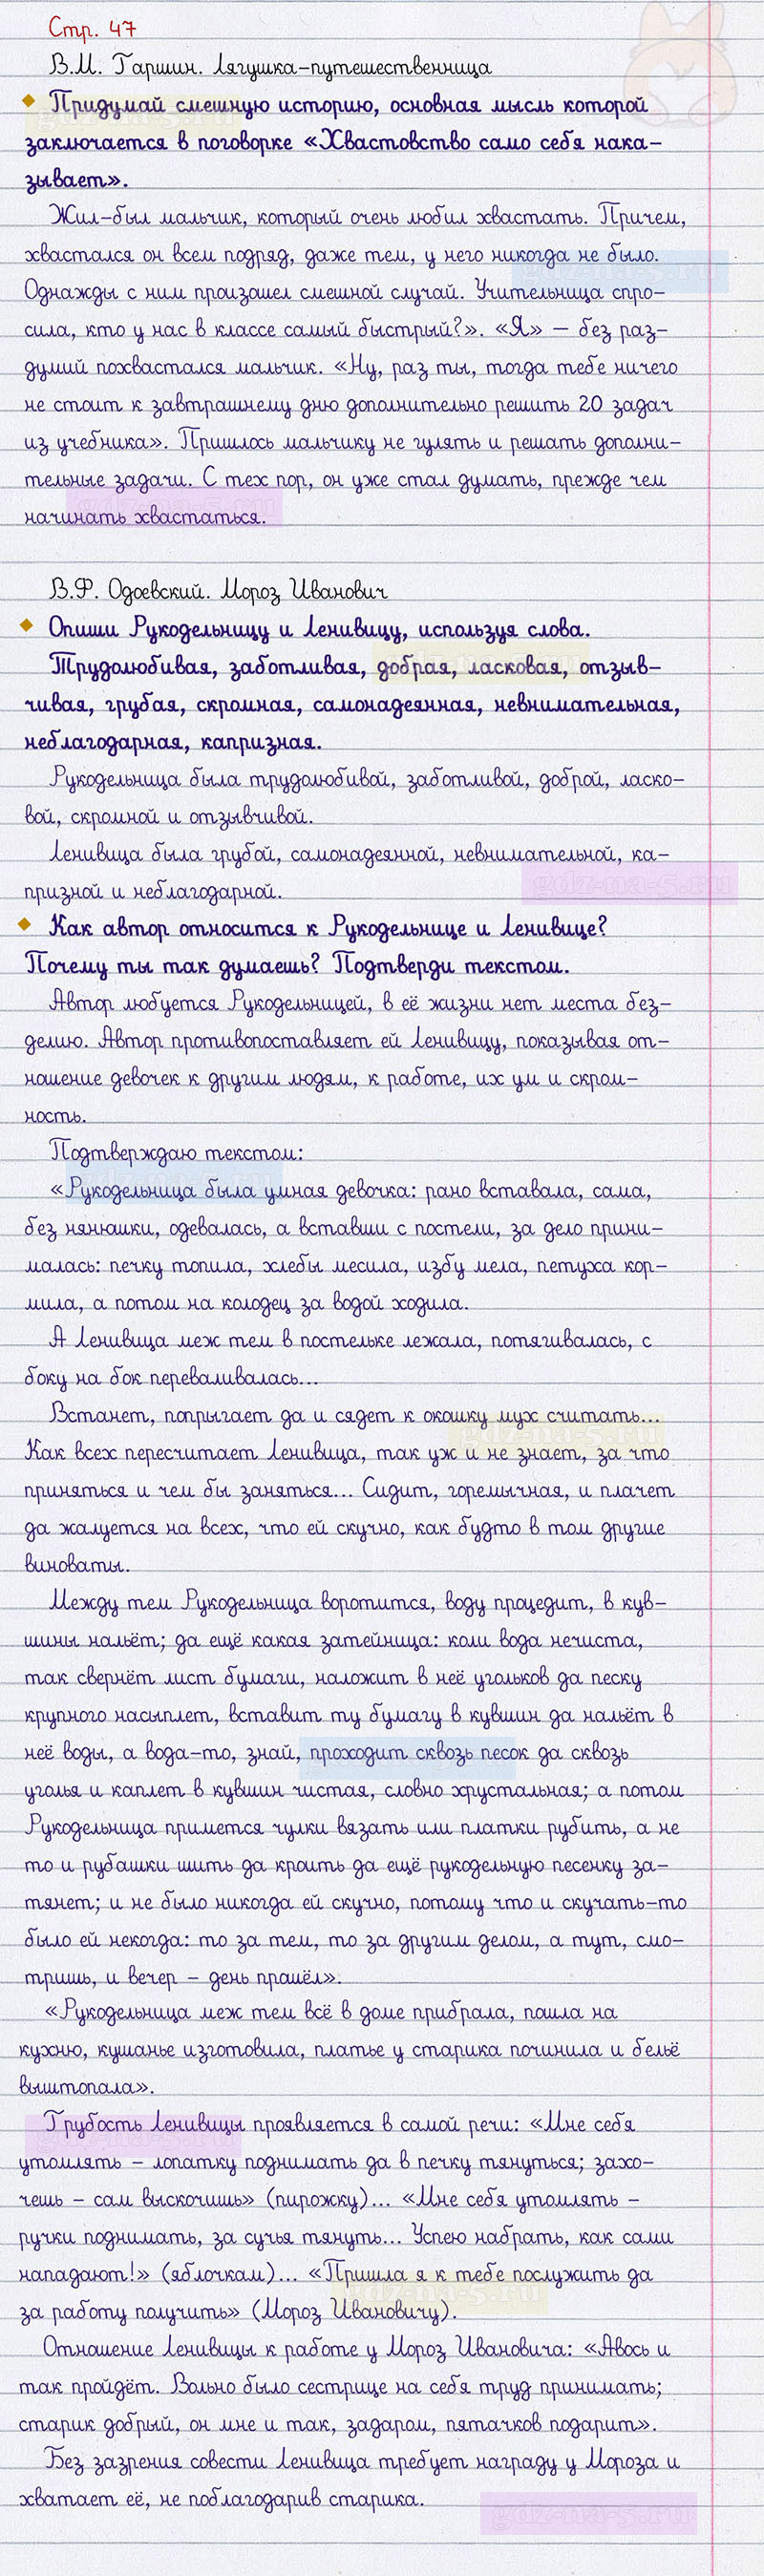 Стр. 47
В.М. Гаршин. Лягушка-путешественница
Придумай смешную историю, основная мысль которой
заключается в поговорке «Хвастовство само себя нака-
зывает».
Жил-был мальчик, который очень любил хвастать. Причем,
хвастался он всем подряд, даже тем, у него никогда не было.
Однажды с ним произошел смешной случай. Учительница спро-
сила, кто у нас в классе самый быстрый?». «Я» – без раз-
думий похвастался мальчик. «Ну, раз ты, тогда тебе ничего
не стоит к завтрашнему дню дополнительно решить 20 задач
из учебника». Пришлось мальчику не гулять и решать дополни-
тельные задачи. С тех пор, он уже стал думать, прежде чем
начинать хвастаться.
В.Ф. Одоевский. Мороз Иванович
Опиши Рукодельницу и Ленивицу, используя слова.
Трудолюбивая, заботливая, добрая, ласковая, отзыв-
чивая, грубая, скромная, самонадеянная, невнимательная,
неблагодарная, капризная.
Рукодельница была трудолюбивой, заботливой, доброй, ласко-
вой, скромной и отзывчивой.
Ленивица была грубой, самонадеянной, невнимательной, ка-
призной и неблагодарной.
gdz-na-5.ru
Как автор относится к Рукодельнице и Ленивице?
Почему ты так думаешь? Подтверди текстом.
Автор любуется Рукодельницей, в её жизни нет места без-
делию. Автор противопоставляет ей Ленивицу, показывая от-
ношение девочек к другим людям, к работе, их ум и скром-
ность.
Подтверждаю текстом:
«Рукодельница была умная девочка: рано вставала, сама,
без нянюшки, одевалась, а вставши с постели, за дело прини-
малась: печку топила, хлебы месила, избу мела, петуха кор-
мила, а потом на колодец за водой ходила.
А Ленивица меж тем в постельке лежала, потягивалась, с
боку на бок переваливалась...
Встанет, попрыгает да и сядет к окошку мух считать...
Как всех пересчитает Ленивица, так уж и не знает, за что
приняться и чем бы заняться... Сидит, горемычная, и плачет
да жалуется на всех, что ей скучно, как будто в том другие
виноваты.
Между тем Рукодельница воротится, воду процедит, в кув-
шины нальёт; да ещё какая затейница: коли вода нечиста,
так свернёт лист бумаги, наложит в неё угольков да песку
крупного насыплет, вставит ту бумагу в кувшин да нальёт в
неё воды, а вода-то, знай, проходит сквозь песок да сквозь
уголья и каплет в кувшин чистая, словно хрустальная; а потом
Рукодельница примется чулки вязать или платки рубить, а не
то и рубашки шить да кроить да ещё рукодельную песенку за-
тянет; и не было никогда ей скучно, потому что и скучать-то
было ей некогда: то за тем, то за другим делом, а тут, смо-
тришь, и вечер – день прошёл».
«Рукодельница меж тем всё в доме прибрала, пошла на
кухню, кушанье изготовила, платье у старика починила и бельё
выштопала».
Грубость Ленивицы проявляется в самой речи: «Мне себя
утомлять – лопатку поднимать да в печку тянуться; захо-
чешь – сам выскочишь» (пирожку)... «Мне себя утомлять –
ручки поднимать, за сучья тянуть... Успею набрать, как сами
нападают!» (яблочкам)... «Пришла я к тебе послужить да
за работу получить» (Мороз Ивановичу).
Отношение Ленивицы к работе у Мороз Ивановича: «Авось и
так пройдёт. Вольно было сестрице на себя труд принимать;
старик добрый, он мне и так, задаром, пятачков подарит».
Без зазрения совести Ленивица требует награду у Мороза и
хватает её, не поблагодарив старика.
gdz-na-5.ru